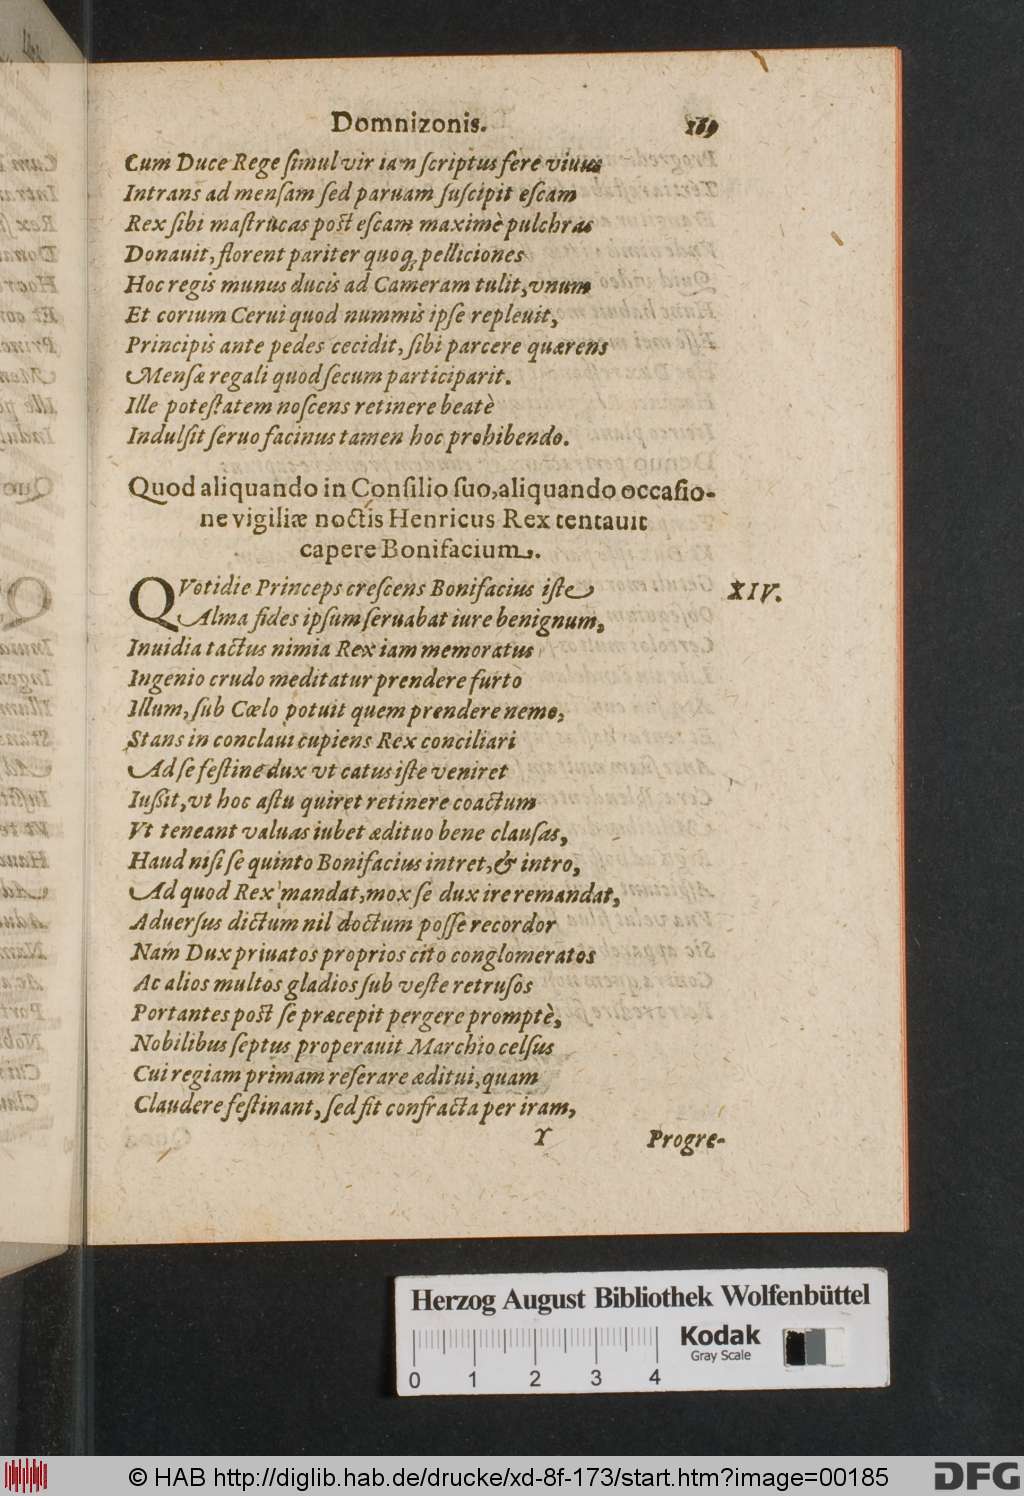 Domnizonis. 169
Cum Duce Rege ſimul vir iam ſcriptus fere viuus
Intrans ad menſam ſed paruam ſuſcipit eſcam
Rex ſibi maſtrucas poſt eſcam maximè pulchras
Donauit, florent pariter quoq; pelliciones
Hoc regis munus ducis ad Cameram tulit, vnum
Et corium Cerui quod nummis ipſe repleuit,
Principis ante pedes cecidit, ſibi parcere quærens
Menſæ regali quod ſecum participarit.
Ille poteſtatem noſcens retinere beatè
Indulſit ſeruo facinus tamen hoc prohibendo.
Quod aliquando in Conſilio ſuo, aliquando occaſio-
ne vigiliæ noctis Henricus Rex tentauit
capere Bonifacium.
QVotidie Princeps creſcens Bonifacius iſte XIV.
Alma fides ipſum ſeruabat iure benignum,
Inuidia tactus nimia Rex iam memoratus
Ingenio crudo meditatur prendere furto
Illum, ſub Cœlo potuit quem prendere nemo,
Stans in conclaui cupiens Rex conciliari
Ad ſe feſtine dux vt catus iſte veniret
Iuſſit, vt hoc aſtu quiret retinere coactum
Vt teneant valuas iubet ædituo bene clauſas,
Haud niſi ſe quinto Bonifacius intret, & intro,
Ad quod Rex mandat, mox ſe dux ire remandat,
Aduerſus dictum nil doctum poſſe recordor
Nam Dux priuatos proprios cito conglomeratos
Ac alios multos gladios ſub veſte retruſos
Portantes poſt ſe præcepit pergere promptè,
Nobilibus ſeptus properauit Marchio celſus
Cui regiam primam reſerare æditui, quam
Claudere feſtinant, ſed fit confracta per iram,
Y Progre-
Herzog August Bibliothek Wolfenbüttel
Kodak
Gray Scale
0 1 2 3 4
© HAB http://diglib.hab.de/drucke/xd-8f-173/start.htm?image=00185
DFG